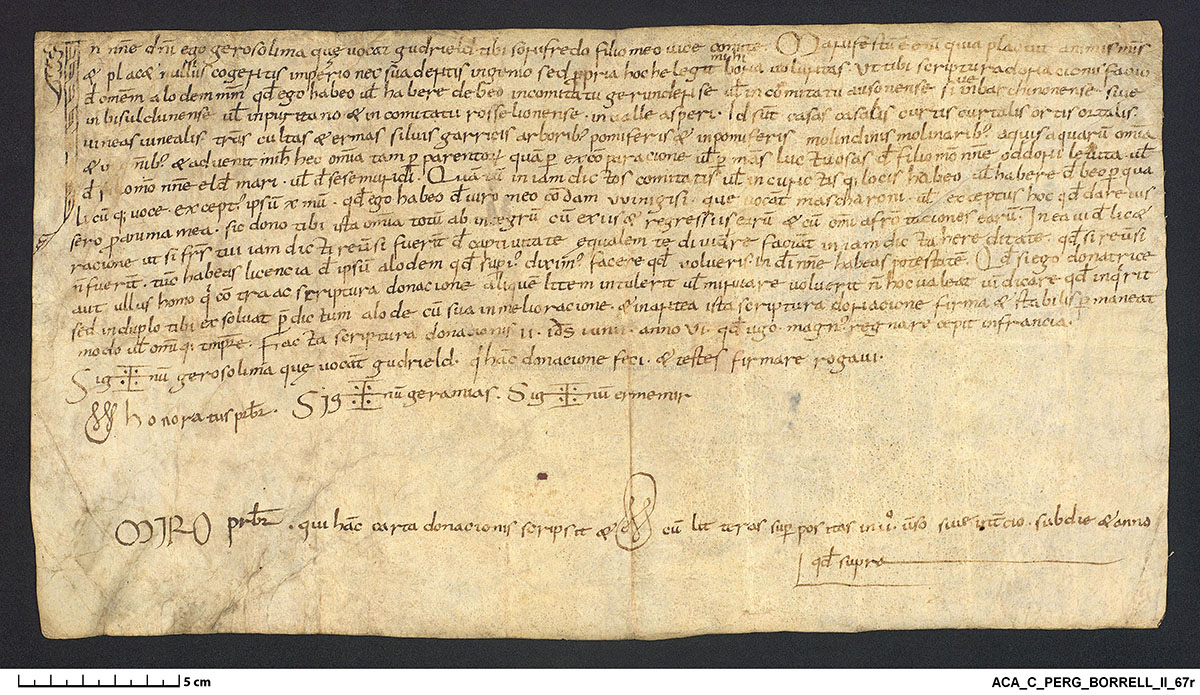 In nne dni ego gerosolima que vocat gudrield tibi sonifredo filio meo vice comite. Manifestu e enim quia placuit animis meis
& place nullius cogentis imperio nec suadentis ingenio sed ppria hoc he legit mihi bona voluntas. ut tibi scriptura donacionis facio
d omem alodem meum qd ego habeo ul habere debeo in comitatu gerundense ul in comitatu ausonense sive in barchinonense sive
in bisuldunense ul inpuritano & in comitatu rosselionense. in valle asperi. Id sut casas casalis curtis curtalis ortis ortalis.
vineas vinealis tras cultas & ermas silvis garricis arborib pomiferis & inpomiferis molindinis molinarib aquis aquaru omia
& omib & advenit mihi hec omia tam p parentor qua p exco paracione ul p mas luctuosas d filio meo nne oddoni levita. ul
d filio meo nne eldemari. ul d sesemundi. Quantu in iam dictos comitatis ul in cunctis q locis habeo ul habere debeo p qua
licu q voce. except ipsu x mu. qd ego habeo d viro meo condam uuinigisi. que vocat mascharoni. ul exceptus hoc qd dare ius
sero p anima mea. sic dono tibi ista omia totu ab integru cu exiis & regressiis earu & cu omi afrotaciones earu. In ea vid lic&
racione ut si frs tui iam dicti reusi fuerit d captivitate equalem te dividre faciat in iam dicta hereditate. qd si reusi
n fuerit. tuc habeas licencia d ipsu alodem qd supi diximus facere qd volueris in di nne habeas potestate. Qd si ego donatrice
aut ullus homo q contra ac scriptura donacione alique litem intulerit ul inruare voluerit n hoc valeat vindicare qd inqrit
sed in duplo tibi exsolvat p dictum alode cu sua inmelioracione. & in antea ista scriptura donacione firma & stabilis p maneat
modo ul omiq tmpre. Facta scriptura donacionis II. ids iunii. anno VI. qd ugo magn regnare cepit in francia.
Sig nu gerosolima que vocat gudrield. q hac donacione feci. & testes firmare rogavi.
honoratus prbr. Sig nu geramias. Sig nu ermemir.
MIRO prbr. qui hac carta donacionis scripsit & cu litteras supra positas in v vrso sive incio. sub die & anno
qd supra